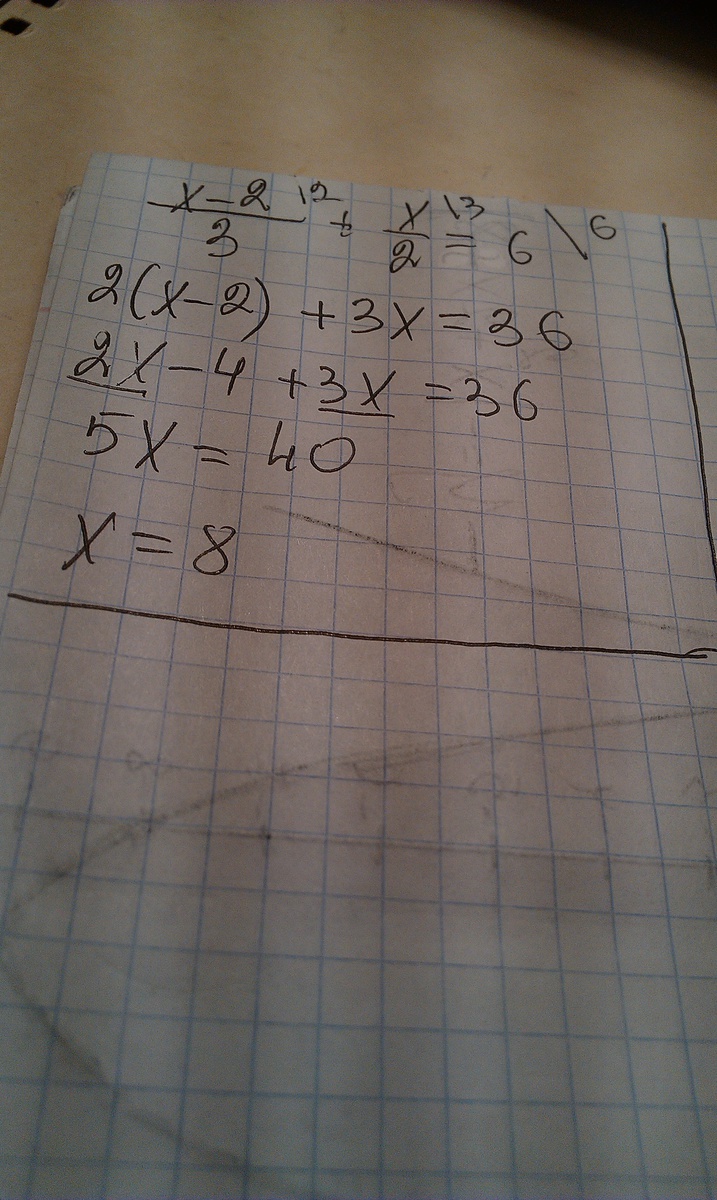 x-2/3 \2 + x/2 \3 = 6 \6
2(x-2) + 3x = 36
2x - 4 + 3x = 36
5x = 40
x = 8